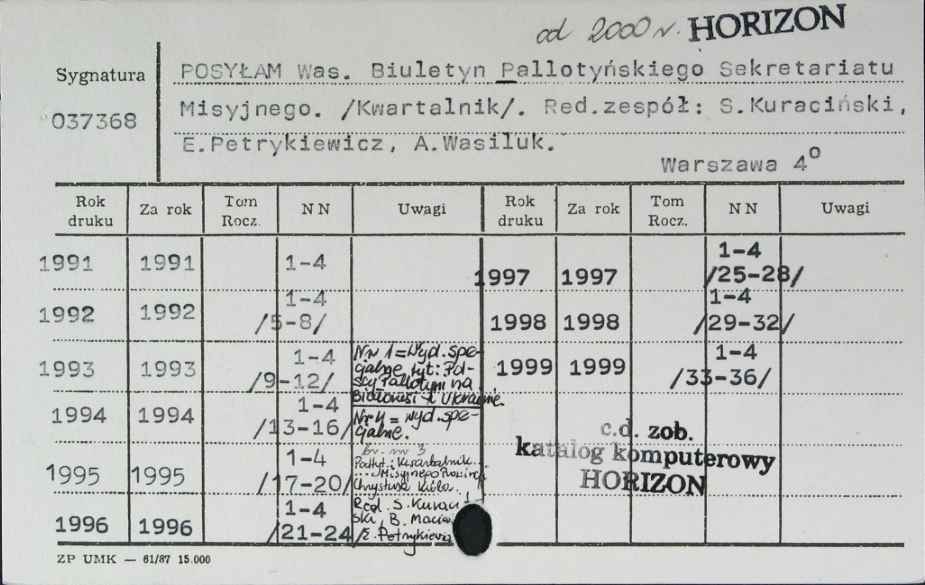 od 2000 r. HORIZON
Sygnatura
037368
POSYŁAM Was. Biuletyn Pallotyńskiego Sekretariatu
Misyjnego. /Kwartalnik/. Red.zespół: S.Kuraciński,
E.Petrykiewicz, A.Wasiluk.
Warszawa 4⁰
Rok druku Za rok Tom Rocz. NN Uwagi Rok druku Za rok Tom Rocz. NN Uwagi
1991 1991 1-4 1997 1997 1-4 /25-28/
1992 1992 1-4 /5-8/ 1998 1998 1-4 /29-32/
1993 1993 1-4 /9-12/ Nr 1 = Wyd. spe-
cjalne, tyt: Pol-
scy Pallotyni na
Białorusi i Ukrainie. 1999 1999 1-4 /33-36/
1994 1994 1-4 /13-16/ Nr 4 = wyd. spe-
cjalne.
c.d. zob.
katalog komputerowy
HORIZON
1995 1995 1-4 /17-20/ nr 3
Podtyt.: Kwartalnik
Misyjnego
Chrystusa Króla.
1996 1996 1-4 /21-24/ Red. S. Kuraci
ski, B.
E. Petrykiewicz
ZP UMK — 61/87 15.000